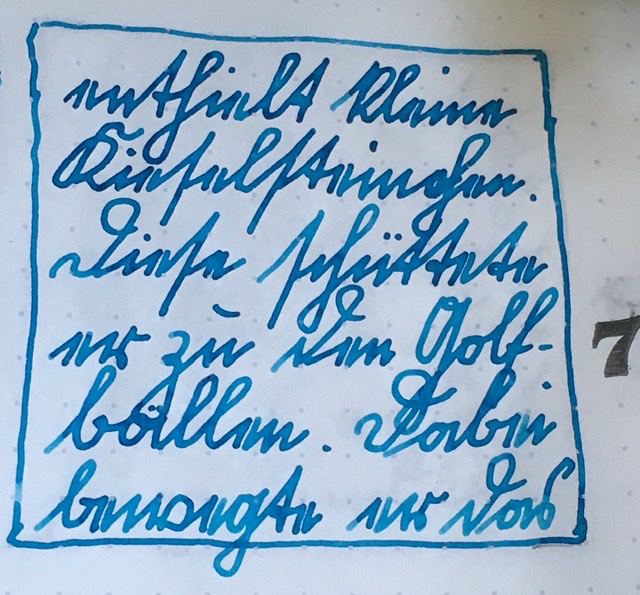 enthielt kleine
Kieselsteinchen.
Diese schüttete
er zu den Golf-
bällen. Dabei
bewegte er das
7